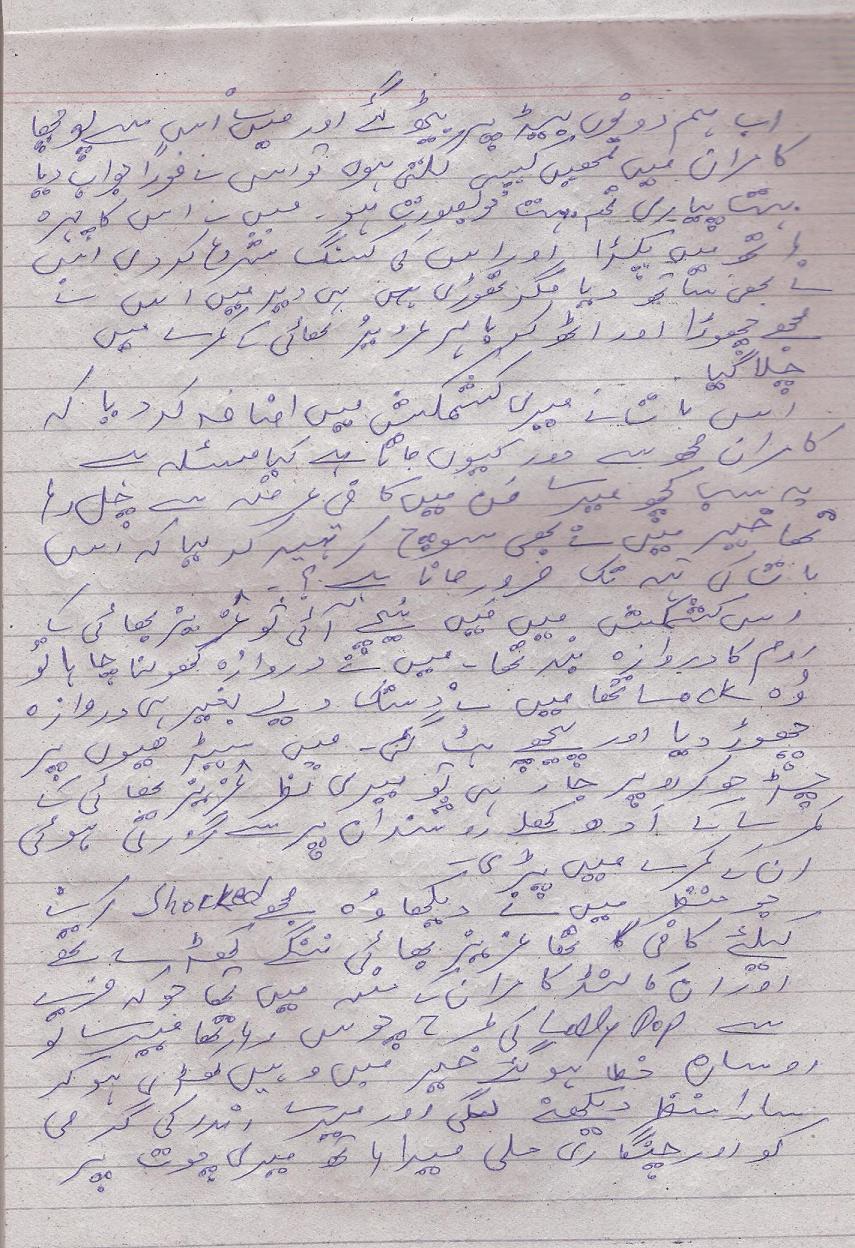 اب ہم دونوں بیڈ پر بیٹھ گئے اور میں نے اس سے پوچھا
کامران میں تمھیں کیسی لگتی ہوں تو اس نے فوراً جواب دیا
بہت پیاری تم بہت خوبصورت ہو۔ میں نے اس کا چہرہ
ہاتھ میں پکڑا اور اس کی کسنگ شروع کر دی اس
نے بھی ساتھ دیا مگر تھوڑی ہی دیر میں اس نے
مجھے چھوڑا اور اٹھ کر باہر عزیز بھائی کے کمرے میں
چلا گیا
اس بات نے میری کشمکش میں اضافہ کر دیا کہ
کامران مجھ سے دور کیوں جاتا ہے کیا مسئلہ ہے
یہ سب کچھ میرے ذہن میں کافی عرصے سے چل رہا
تھا خیر میں نے بھی سوچ کر تہیہ کر لیا کہ اس
بات کی تہہ تک ضرور جانا ہے؟
اس کشمکش میں میں نیچے آئی تو عزیز بھائی کے
روم کا دروازہ بند تھا۔ میں نے دروازہ کھولنا چاہا تو
وہ Lock تھا میں نے دستک دیے بغیر ہی دروازہ
چھوڑ دیا اور پیچھے ہٹ گئی۔ میں سیڑھیوں پر
چڑھ کر اوپر جا رہی تھی تو میری نظر عزیز بھائی کے
کمرے کے آدھ کھلے روشندان پر سے گزرتی ہوئی
ان کے کمرے میں پڑی۔
جو منظر میں نے دیکھا وہ مجھے Shorked کرنے
کیلئے کافی تھا عزیز بھائی ننگے کھڑے تھے
اور ان کا لنڈ کامران کے منہ میں تھا جو کہ مزے
سے Lolly Pop کی طرح چوس رہا تھا میرے تو
اوسان خطا ہو گئے خیر میں وہیں کھڑی ہو کر
سارا منظر دیکھنے لگی اور میرے اندر کی گرمی
کو اور چنگاری ملی میرا ہاتھ میری چوت پر